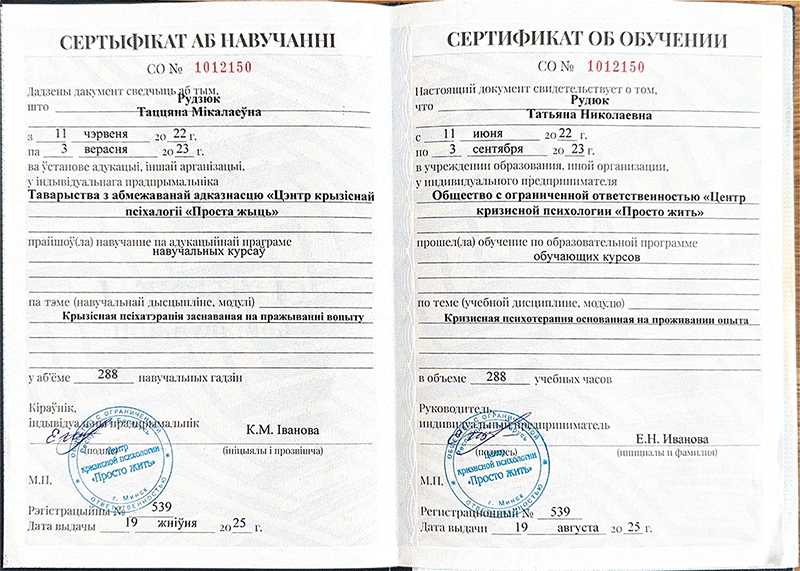 СЕРТЫФІКАТ АБ НАВУЧАННІ
СО № 1012150
Дадзены дакумент сведчыць аб тым,
Рудзюк
што Таццяна Мікалаеўна
з 11 чэрвеня 20 22 г.
па 3 верасня 20 23 г.
ва ўстанове адукацыі, іншай арганізацыі,
у індывідуальнага прадпрымальніка
Таварыства з абмежаванай адказнасцю «Цэнтр крызіснай
псіхалогіі «Проста жыць»
прайшоў(ла) навучанне па адукацыйнай праграме
навучальных курсаў
па тэме (навучальнай дысцыпліне, модулі)
Крызісная псіхатэрапія заснаваная на пражыванні вопыту
у аб'ёме 288 навучальных гадзін
Кіраўнік,
індывідуальны прадпрымальнік
К.М. Іванова
(подпіс) (ініцыялы і прозвішча)
М.П.
Рэгістрацыйны № 539
Дата выдачы 19 жніўня 20 25 г.
ОБЩЕСТВО С ОГРАНИЧЕННОЙ ОТВЕТСТВЕННОСТЬЮ
Республика Беларусь
Центр
кризисной психологии
«Просто жить»
г. Минск
СЕРТИФИКАТ ОБ ОБУЧЕНИИ
СО № 1012150
Настоящий документ свидетельствует о том,
Рудюк
что Татьяна Николаевна
с 11 июня 20 22 г.
по 3 сентября 20 23 г.
в учреждении образования, иной организации,
у индивидуального предпринимателя
Общество с ограниченной ответственностью «Центр
кризисной психологии «Просто жить»
прошел(ла) обучение по образовательной программе
обучающих курсов
по теме (учебной дисциплине, модулю)
Кризисная психотерапия основанная на проживании опыта
в объеме 288 учебных часов
Руководитель,
индивидуальный предприниматель
Е.Н. Иванова
(подпись) (инициалы и фамилия)
М.П.
Регистрационный № 539
Дата выдачи 19 августа 20 25 г.
ОБЩЕСТВО С ОГРАНИЧЕННОЙ ОТВЕТСТВЕННОСТЬЮ
Республика Беларусь
Центр
кризисной психологии
«Просто жить»
г. Минск